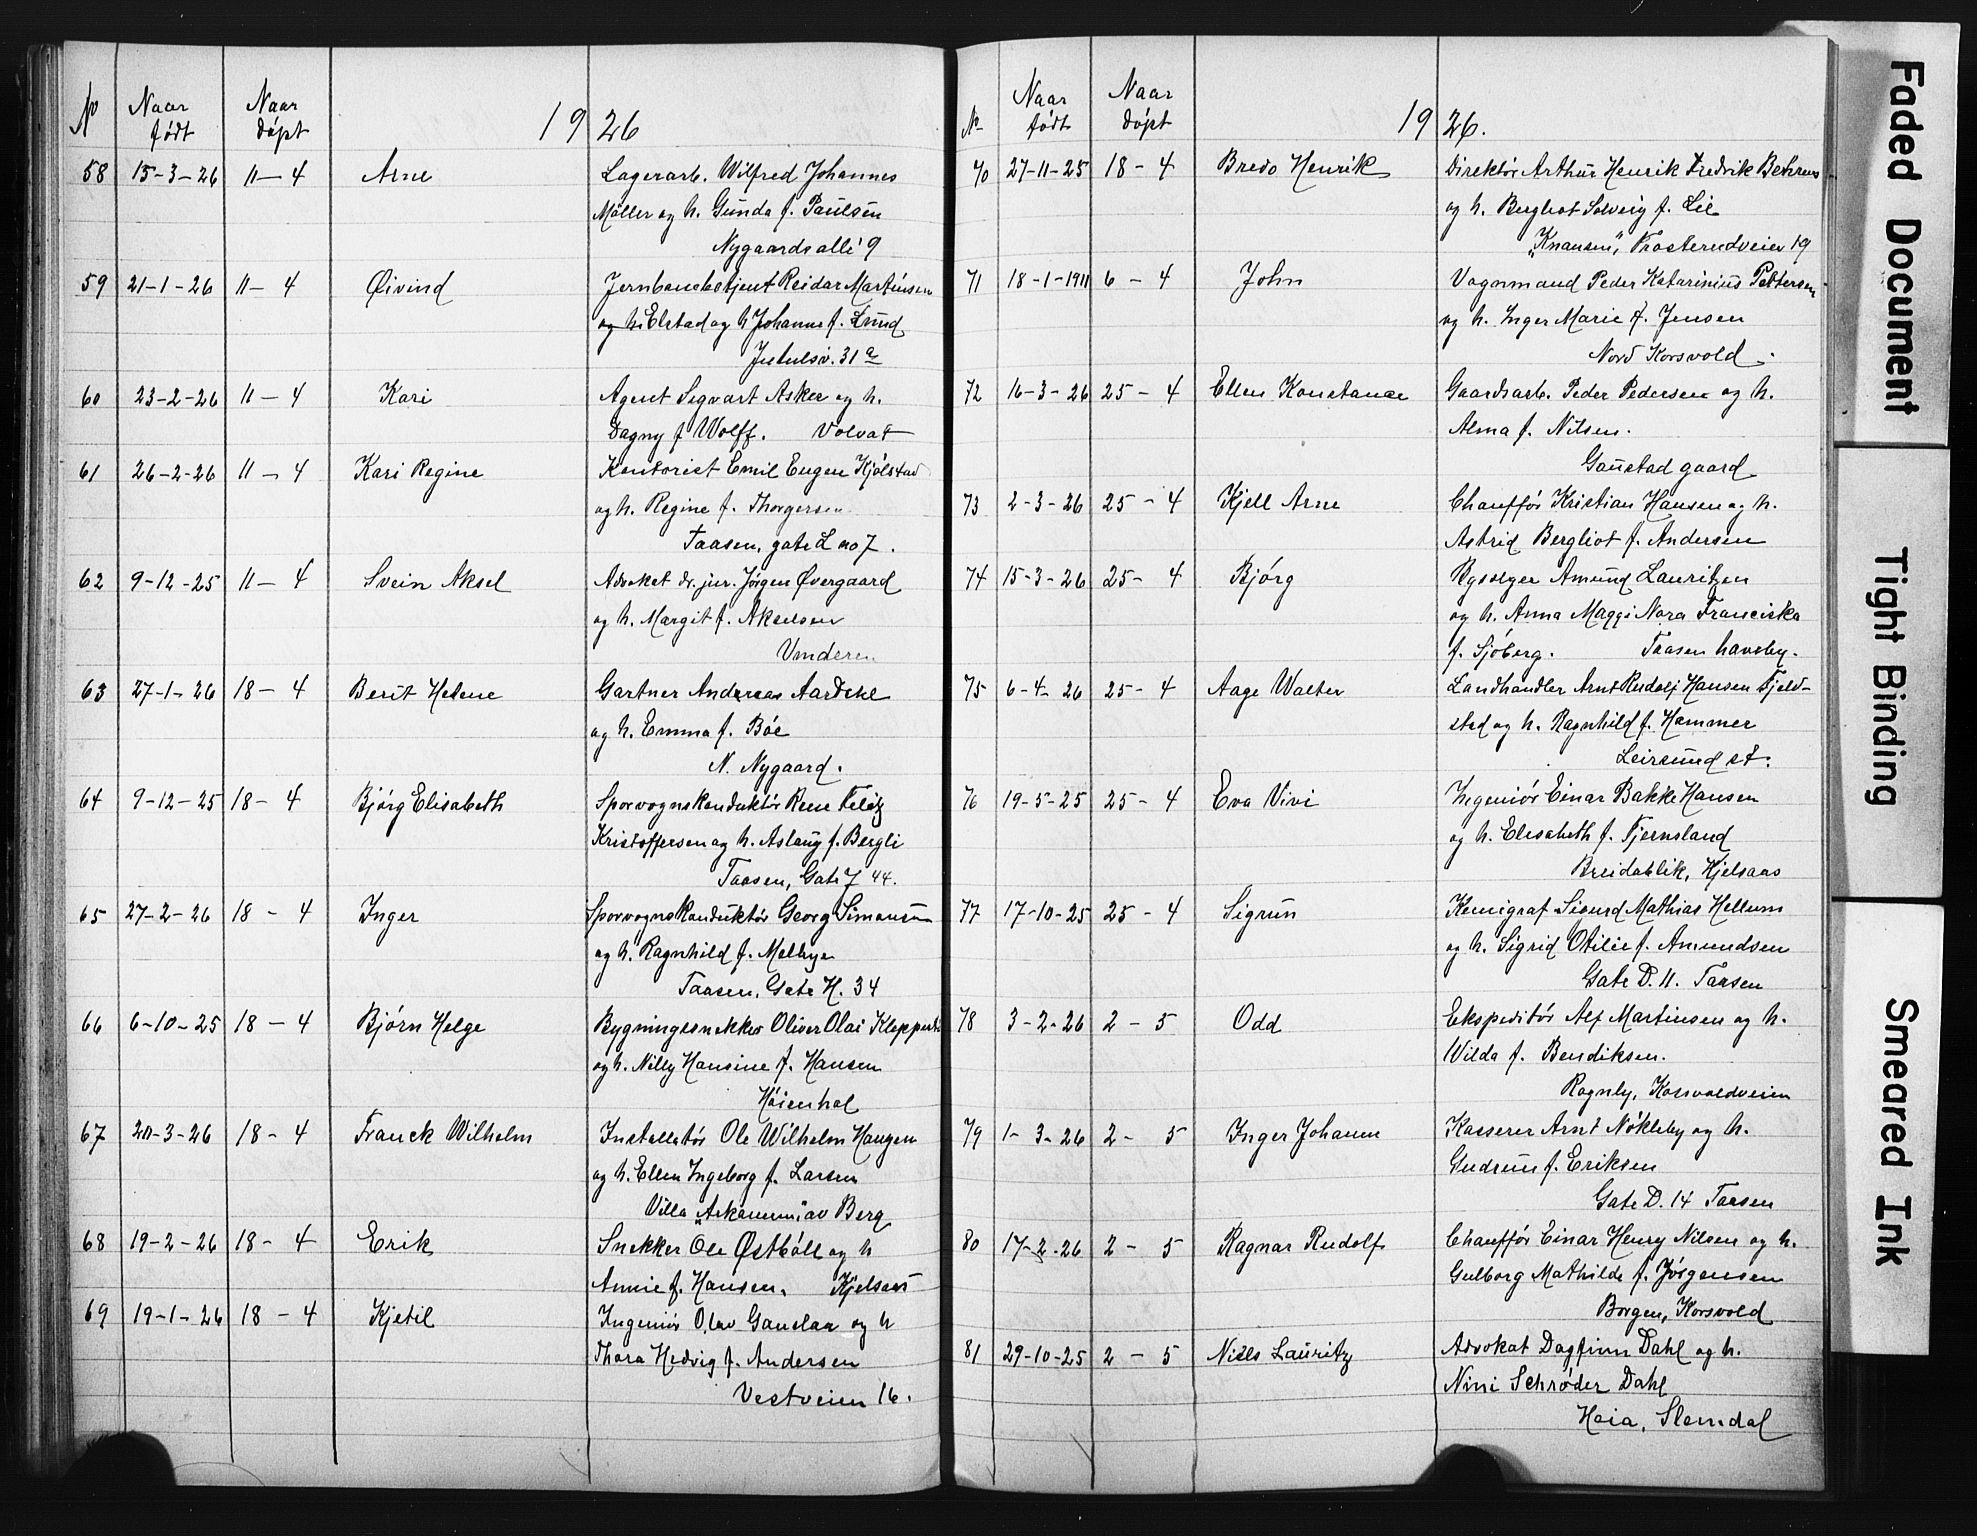 No
Naar født
Naar døpt
1926
58 15-3-26 11-4 Arne Lagerarb. Wilfred Johannes
Møller og h. Gunda f. Paulsen
Nygaardsallé 9
59 21-1-26 11-4 Øivind Jernbanebetjent Reidar Martinsen
og h. Elstad og h Johanne f. Lund
Jutulsv. 31 a
60 23-2-26 11-4 Kari Agent Sigvart Asker og h.
Dagny f Wolff. Volvat
61 26-2-26 11-4 Kari Regine Kontorist Emil Eugen Kjölstad
og h. Regine f. Thorgersen
Taasen, gate L no 7.
62 9-12-25 11-4 Svein Aksel Advokat dr. jur. Jörgen Øvergaard
og h. Margit f. Akselsen
Vinderen
63 27-1-26 18-4 Berit Helene Gartner Andreas
og h. Emma f. Böe
N. Nygaard.
64 9-12-25 18-4 Bjórg Elisabeth Sporvognskonduktör Rene Felix
Kristoffersen og h. Aslaug f. Bergli
Taasen, Gate 7 44.
65 27-2-26 18-4 Inger Sporvognskonduktör Georg Simonsen
og h. Ragnhild f. Melbye
Taasen, Gate H. 34
66 6-10-25 18-4 Bjórn Helge Bygningssnekker Oliver Olai
og h. Nilly Hansine f. Hansen
Höienhal
67 20-3-26 18-4 Franck Wilhelm Installatór Ole Wilhelm Haugen
og h. Ellen Ingeborg f. Larsen
Villa av Berg
68 19-2-26 18-4 Erik Snekker Ole Østbóll og h
Annie f. Hansen. Kjelsaas
69 19-1-26 18-4 Kjetil Ingeniór Olav og h
Thora Hedvig f. Andersen
Vestveien 16.
No
Naar født
Naar døpt
1926.
70 27-11-25 18-4 Bredo Henrik Direktör Arthur Henrik Fredrik Behrens
og h. Bergliot Solveig f. Lie
"Knausen", Frosterudveien 19
71 18-1-1911 6-4 John Vognmand Peder Katarinius Pettersen
og h. Inger Marie f. Jensen
Nord Korsvold.
72 16-3-26 25-4 Ellen Konstanse Gaardsarb. Peder Pedersen og h.
Alma f. Nilsen.
Gaustad gaard
73 2-3-26 25-4 Kjell Arne Chauffór Kristian Hansen og h.
Astrid Bergliot f. Andersen
74 15-3-26 25-4 Bjórg Rgsolger Amund Lauritzen
og h. Anna Maggi Nora Franciska
f. Sjóberg. Taasen haveby.
75 6-4-26 25-4 Aage Walter Landhandler Arnt Rudolf Hansen Fjeld-
stad og h. Ragnhild f. Hammer
Leirsund st.
76 19-5-25 25-4 Eva Vivi Ingeniór Einar Bakke Hansen
og h. Elisabeth f. Tjernsland
Breidablik, Kjelsaas
77 17-10-25 25-4 Sigrun Kemigraf Sigurd Mathias Hellum
og h. Sigrid Otilie f. Amundsen
Gate D. 11. Taasen
78 3-2-26 2-5 Odd Ekspeditór Alf Martinsen og h.
Wilda f. Bendiksen.
Ragnly, Korsvoldveien
79 1-3-26 2-5 Inger Johanne Kasserer Arnt Nókleby og h.
Gudrun f. Eriksen
Gate D. 14 Taasen
80 17-2-26 2-5 Ragnar Rudolf Chauffór Einar Henry Nilsen og h.
Gulborg Mathilde f. Jórgensen
Borgen, Korsvold
81 29-10-25 2-5 Niels Lauritz Advokat Dagfinn Dahl og h.
Nini Schrøder Dahl
Heia, Slemdal
Faded Document
Tight Binding
Smeared Ink